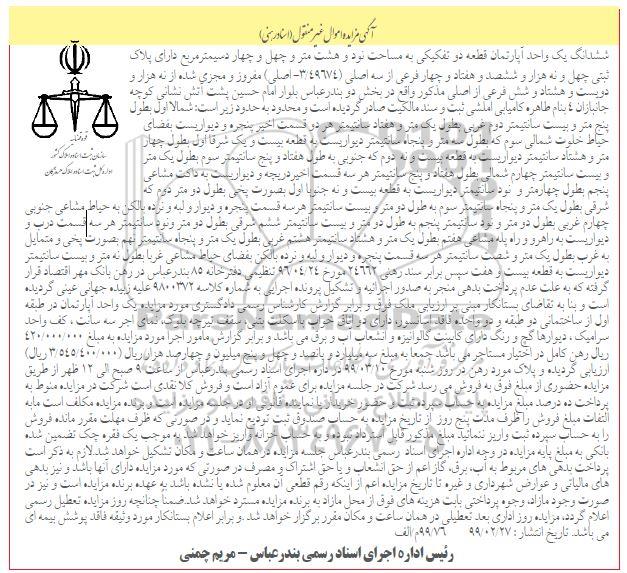 آگهی مزایده اموال غیرمنقول (اسناد رهنی)
ششدانگ یک واحد آپارتمان قطعه دو تفکیکی به مساحت نود و هشت متر و چهل و چهار دسیمترمربع دارای پلاک
ثبتی چهل و نه هزار و ششصد و هفتاد و چهار فرعی از سه اصلی (۳/۴۹۶۷۴- اصلی) مفروز و مجزی شده از نه هزار و
دویست و هشتاد و شش فرعی از اصلی مذکور واقع در بخش دو بندرعباس بلوار امام حسین پشت آتش نشانی کوچه
جانبازان ۴ بنام طاهره کامیابی املشی ثبت و سند مالکیت صادر گردیده است و محدود به حدود زیر است: شمالا اول بطول
پنج متر و بیست سانتیمتر دوم غربی بطول یک متر و هفتاد سانتیمتر هر دو قسمت اخیر پنجره و دیواریست بفضای
حیاط خلوت شمالی سوم که بطول سه متر و پنجاه سانتیمتر دیواریست به قطعه بیست و یک شرقا اول بطول چهار
متر و هشتاد سانتیمتر دیواریست به قطعه بیست و نه دوم که جنوبی به طول هفتاد و پنج سانتیمتر سوم بطول یک متر
و بیست سانتیمتر چهارم شمالی بطول هفتاد و پنج سانتیمتر هر سه قسمت اخیر دریچه و دیواریست به داکت مشاعی
پنجم بطول چهارمتر و نود سانتیمتر دیواریست به قطعه بیست و نه جنوبا اول بصورت پخی بطول دو متر دوم که
شرقی بطول یک متر و پنجاه سانتیمتر سوم به طول دو متر و بیست سانتیمتر هرسه قسمت پنجره و دیوار و لبه و نرده بالکن به حیاط مشاعی جنوبی
چهارم غربی بطول دو متر و نود سانتیمتر پنجم به طول دو متر و بیست سانتیمتر ششم شرقی بطول دو متر ونود سانتیمتر هر سه قسمت درب و
دیواریست به راهرو و راه پله مشاعی هفتم بطول یک متر و هشتاد سانتیمتر هشتم غربی بطول یک متر و پنجاه سانتیمتر نهم بصورت پخی و متمایل
به غرب بطول یک متر و شصت سانتیمتر هر سه قسمت پنجره و دیوار و لبه و نرده بالکن بفضای حیاط مشاعی غربا بطول نه متر و بیست سانتیمتر
دیواریست به قطعه بیست و هفت سپس برابر سند رهنی ۲۴۶۶۲ مورخ ۹۶۰۴/۲۴ تنظیمی دفترخانه ۸۵ بندرعباس در رهن بانک مهر اقتصاد قرار
گرفته که به علت عدم پرداخت بدهی منجر به صدور اجرائیه و تشکیل پرونده اجرایی به شماره کلاسه ۹۸۰۰۳۷۲ علیه زبیده جهانی عینی گردیده
است و بنا به تقاضای بستانکار مبنی بر ارزیابی ملک فوق و برابر گزارش کارشناس رسمی دادگستری مورد مزایده یک واحد آپارتمان در طبقه
اول از ساختمانی دو طبقه و دو واحده فاقد آسانسور، دارای دو اتاق خواب با اسکلت بتنی سقف تیرچه بلوک، نمای آجر سه سانت، کف واحد
سرامیک، دیوارها گچ و رنگ دارای کابینت گالوانیزه و انشعاب آب و برق می باشد و برابر گزارش مامور اجرا مورد مزایده به مبلغ ۴۲۰/۰۰۰/۰۰۰
ریال رهن کامل در اختیار مستاجر می باشد جمعا به مبلغ سه میلیارد و پانصد و چهل و پنج میلیون و چهارصد هزار ریال (۳/۵۴۵/۴۰۰/۰۰۰ ریال)
ارزیابی گردیده و پلاک مورد رهن در روز شنبه مورخ ۹۹۰۳/۱۰ در اداره اجرای اسناد رسمی بندرعباس از ساعت ۹ صبح الی ۱۲ ظهر از طریق
مزایده حضوری از مبلغ فوق به فروش می رسد شرکت در جلسه مزایده برای عموم آزاد است و فروش کلا نقدی است شرکت در مزایده منوط به
پرداخت ده درصد مبلغ مزایده به حساب سپرده ثبت و حضور خریدار یا نماینده قانونی او در جلسه مزایده است و برنده مزایده مکلف است مابه
التفات مبلغ فروش را ظرف مدت پنج روز از تاریخ مزایده به حساب صندوق ثبت تودیع نماید و در صورتی که ظرف مهلت مقرر مانده فروش
را به حساب سپرده ثبت واریز ننمائید مبلغ مذکور قابل استرداد نبوده و به حساب خزانه واریز خواهد شد به موجب یک فقره چک تضمین شده
بانکی به مبلغ پایه مزایده در وجه اداره اجرای اسناد رسمی بندرعباس جلسه مزایده در همان ساعت و مکان تشکیل خواهد شد لازم به ذکر است
پرداخت بدهی های مربوط به آب، برق، گاز اعم از حق انشعاب و یا حق اشتراک و مصرف در صورتی که مورد مزایده دارای آنها باشد و نیز بدهی
های مالیاتی و عوارض شهرداری و غیره تا تاریخ مزایده اعم از اینکه رقم قطعی آن معلوم شده یا نشده باشد به عهده برنده مزایده است و نیز در
صورت وجود مازاد، وجوه پرداختی بابت هزینه های فوق از محل مازاد به برنده مزایده مسترد خواهد شد.ضمناً چنانچه روز مزایده تعطیل رسمی
اعلام گردد، مزایده روز اداری بعد تعطیلی در همان ساعت و مکان مقرر برگزار خواهد شد .و برابر اعلام بستانکار مورد وثیقه فاقد پوشش بیمه ای
می باشد. تاریخ انتشار : ۹۹/۰۲/۲۷ ۹۹/۷۶م الف
رئیس اداره اجرای اسناد رسمی بندرعباس – مریم چمنی
قوه قضاییه
سازمان ثبت اسناد و املاک کشور
اداره کل ثبت اسناد و املاک هرمزگان